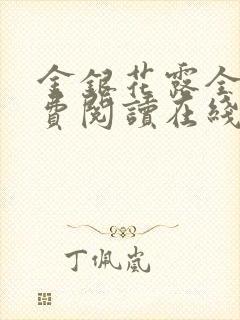 金銀花露全
費閱讀在綫
丁佩嵐